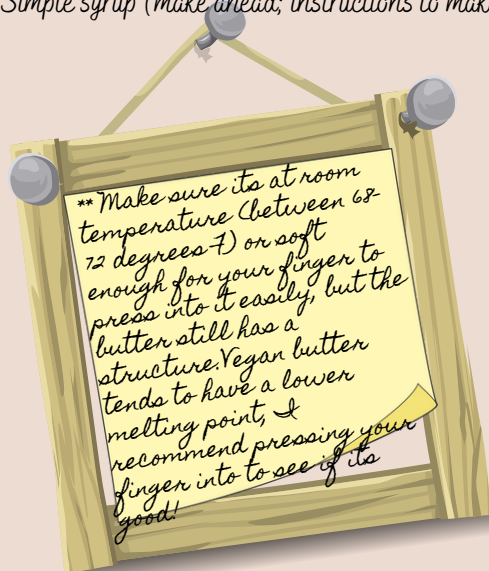 Simple syrup (make ahead; instructions to mak
** Make sure its at room
temperature (between 68-
72 degrees F) or soft
enough for your finger to
press into it easily, but the
butter still has a
structure.Vegan butter
tends to have a lower
melting point, I
recommend pressing your
finger into to see if its
good!